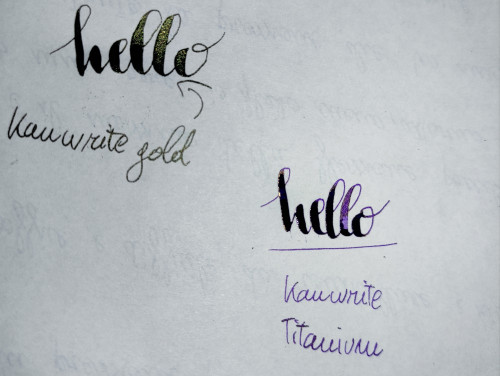 hello
Kanwrite gold
hello
Kanwrite
Titanium